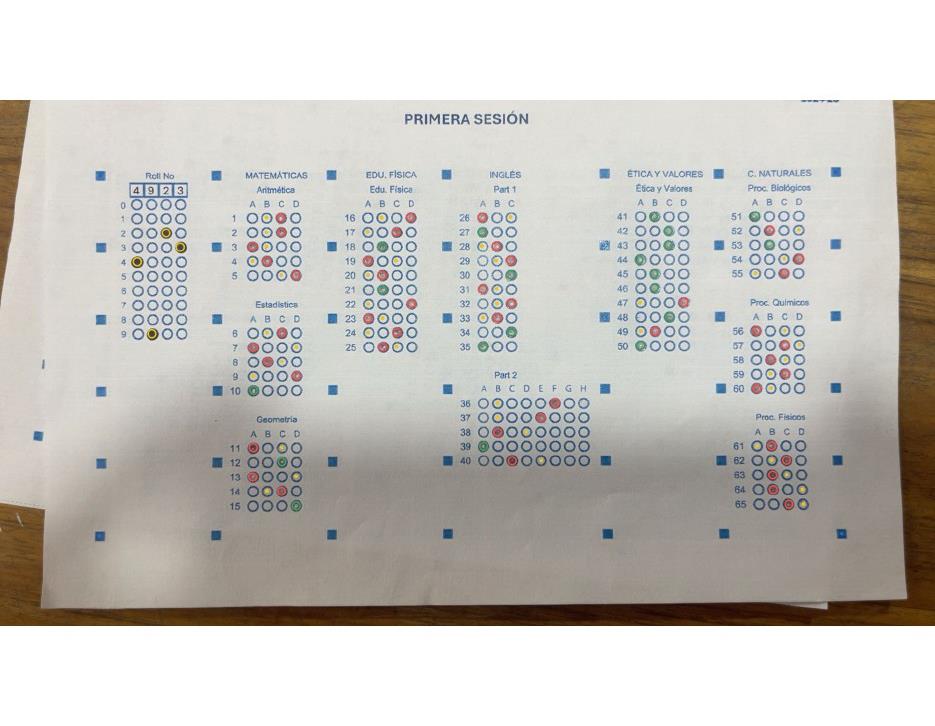 PRIMERA SESIÓN
Roll No
4 9 2 3
0
1
2
3
4
5
6
7
8
9
MATEMÁTICAS
Aritmética
A B C D
1
2
3
4
5
Estadística
A B C D
6
7
8
9
10
Geometría
A B C D
11
12
13
14
15
EDU. FÍSICA
Edu. Física
A B C D
16
17
18
19
20
21
22
23
24
25
INGLÉS
Part 1
A B C
26
27
28
29
30
31
32
33
34
35
Part 2
A B C D E F G H
36
37
38
39
40
ÉTICA Y VALORES
Ética y Valores
A B C D
41
42
43
44
45
46
47
48
49
50
C. NATURALES
Proc. Biológicos
A B C D
51
52
53
54
55
Proc. Químicos
A B C D
56
57
58
59
60
Proc. Físicos
A B C D
61
62
63
64
65